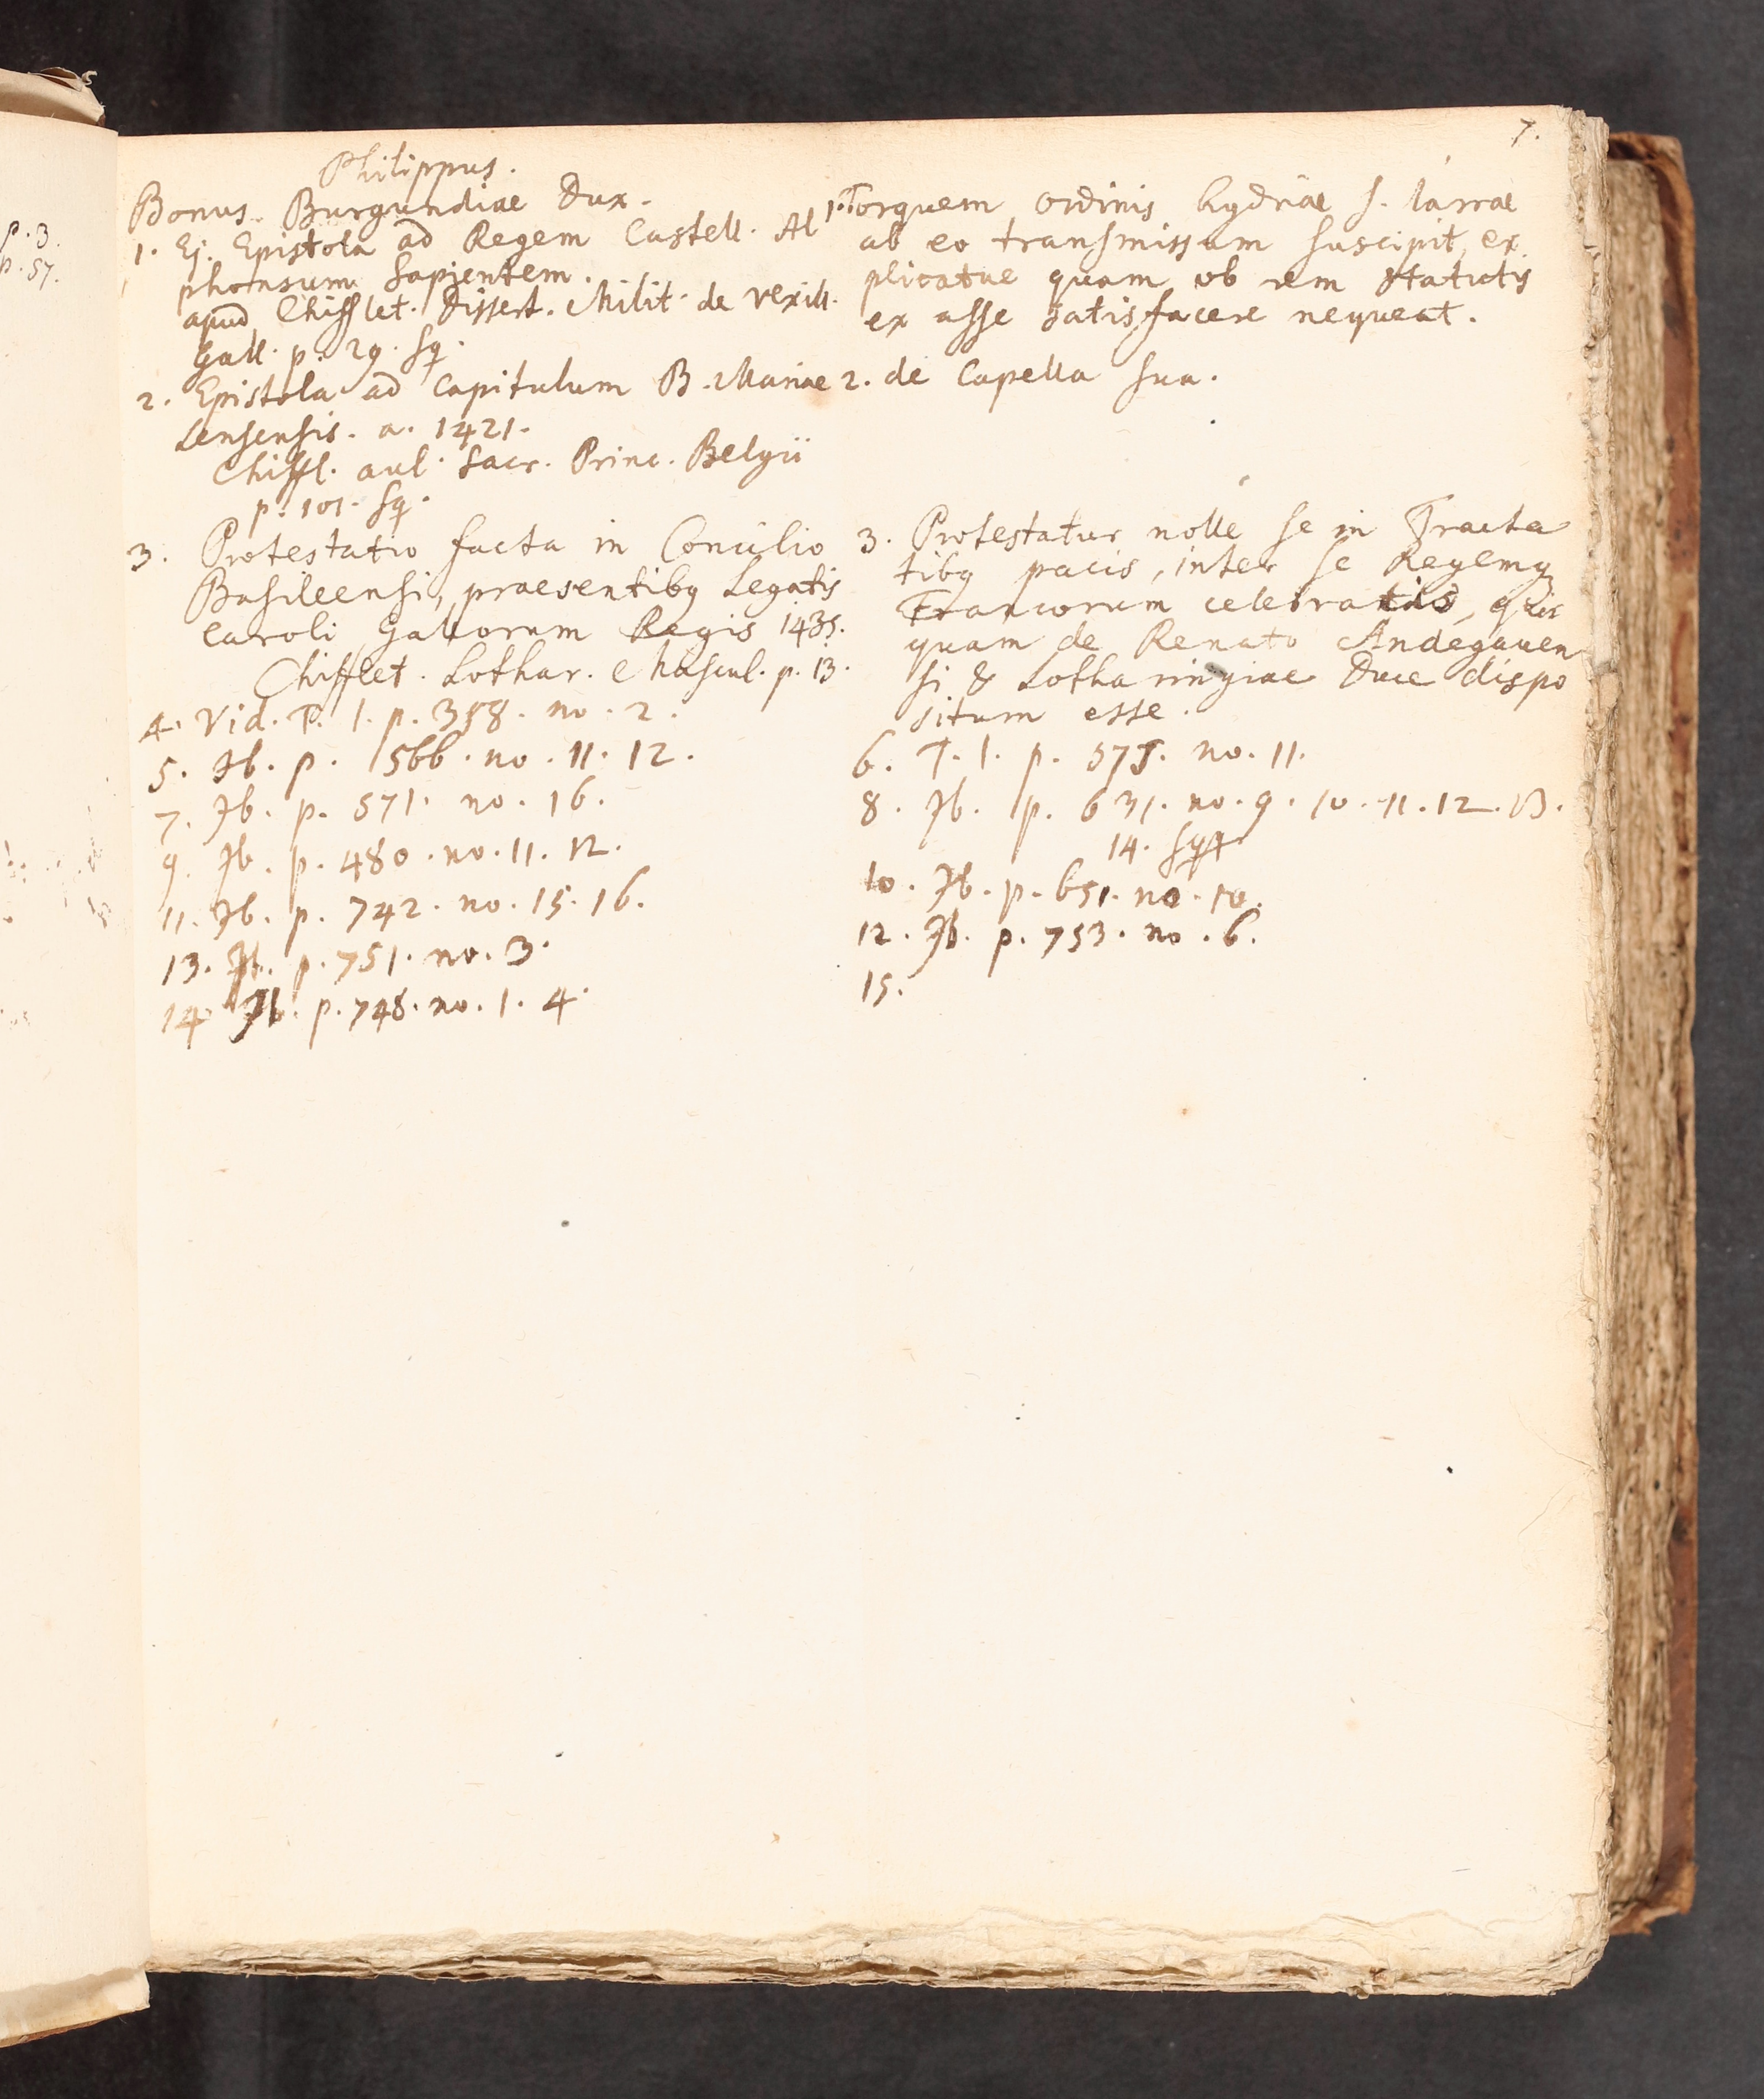 p. 3.
p. 57.
7.
Philippus.
Bonus. Burgundiae Dux.
1. Ej. Epistola ad Regem Castell. Al
phonsum Sapientem.
apud Chifflet. Dissert. Milit. de Vexill.
Gall. p. 29. sq.
2. Epistola ad Capitulum B. Mariae
Lensensis. a. 1421.
Chiffl. aul. Sacr. Princ. Belgii
p. 101. sq.
3. Protestatio facta in Concilio
Basileensi, praesentibq Legatis
Caroli Gallorum Regis 1435.
Chifflet. Lothar. Mascul. p. 13.
4. Vid. T. 1. p. 358. no. 2.
5. Ib. p. 566. no. 11. 12.
7. Ib. p. 571. no. 16.
9. Ib. p. 480. no. 11. 12.
11. Ib. p. 742. no. 15. 16.
13. Ib. p. 751. no. 3.
14. Ib. p. 748. no. 1. 4.
1. Torquem ordinis hydriae s. larrae
ab eo transmissum suscipit, ex
plicatue quam ob rem statutis
ex asse satisfacere nequeat.
2. de Capella sua.
3. Protestatur nolle se in Tracta
tibq pacis, inter se Regemq
Francorum celebratis, quic
quam de Renato Andegauen
si & Lotharingiae Duce dispo
situm esse.
6. T. 1. p. 575. no. 11.
8. Ib. p. 631. no. 9. 10. 11. 12. 13.
14. sqq.
10. Ib. p. 651. no. 10.
12. Ib. p. 753. no. 6.
15.